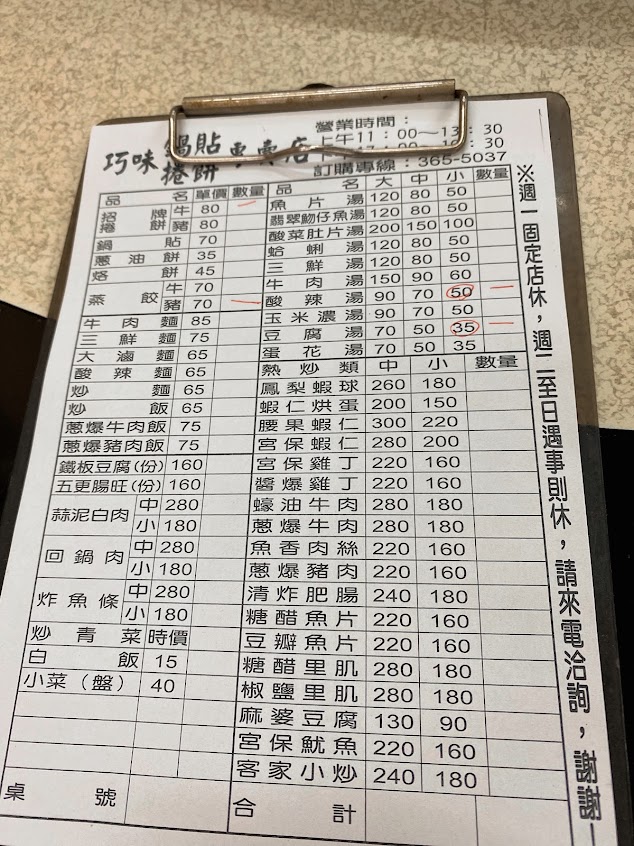 巧味 鍋貼捲餅 專賣店
營業時間：
上午11：00～13：30
訂購專線：365-5037
※週一固定店休，週二至日遇事則休，請來電洽詢，謝謝
品名 單價 數量
招牌捲餅 牛 80
豬 80
鍋貼 70
蔥油餅 35
烙餅 45
蒸餃 牛 70
豬 70
牛肉麵 85
三鮮麵 75
大滷麵 65
酸辣麵 65
炒麵 65
炒飯 65
蔥爆牛肉飯 75
蔥爆豬肉飯 75
鐵板豆腐(份) 160
五更腸旺(份) 160
蒜泥白肉 中 280
小 180
回鍋肉 中 280
小 180
炸魚條 中 280
小 180
炒青菜 時價
白飯 15
小菜(盤) 40
桌號
品名 大 中 小 數量
魚片湯 120 80 50
翡翠魩仔魚湯 120 80 50
酸菜肚片湯 200 150 100
蛤蜊湯 120 80 50
三鮮湯 120 80 50
牛肉湯 150 90 60
酸辣湯 90 70 50
玉米濃湯 90 70 50
豆腐湯 70 50 35
蛋花湯 70 50 35
熱炒類 中 小 數量
鳳梨蝦球 260 180
蝦仁烘蛋 200 150
腰果蝦仁 300 220
宮保蝦仁 280 200
宮保雞丁 220 160
醬爆雞丁 220 160
蠔油牛肉 280 180
蔥爆牛肉 280 180
魚香肉絲 220 160
蔥爆豬肉 220 160
清炸肥腸 240 180
糖醋魚片 220 160
豆瓣魚片 220 160
糖醋里肌 280 180
椒鹽里肌 280 180
麻婆豆腐 130 90
宮保魷魚 220 160
客家小炒 240 180
合計